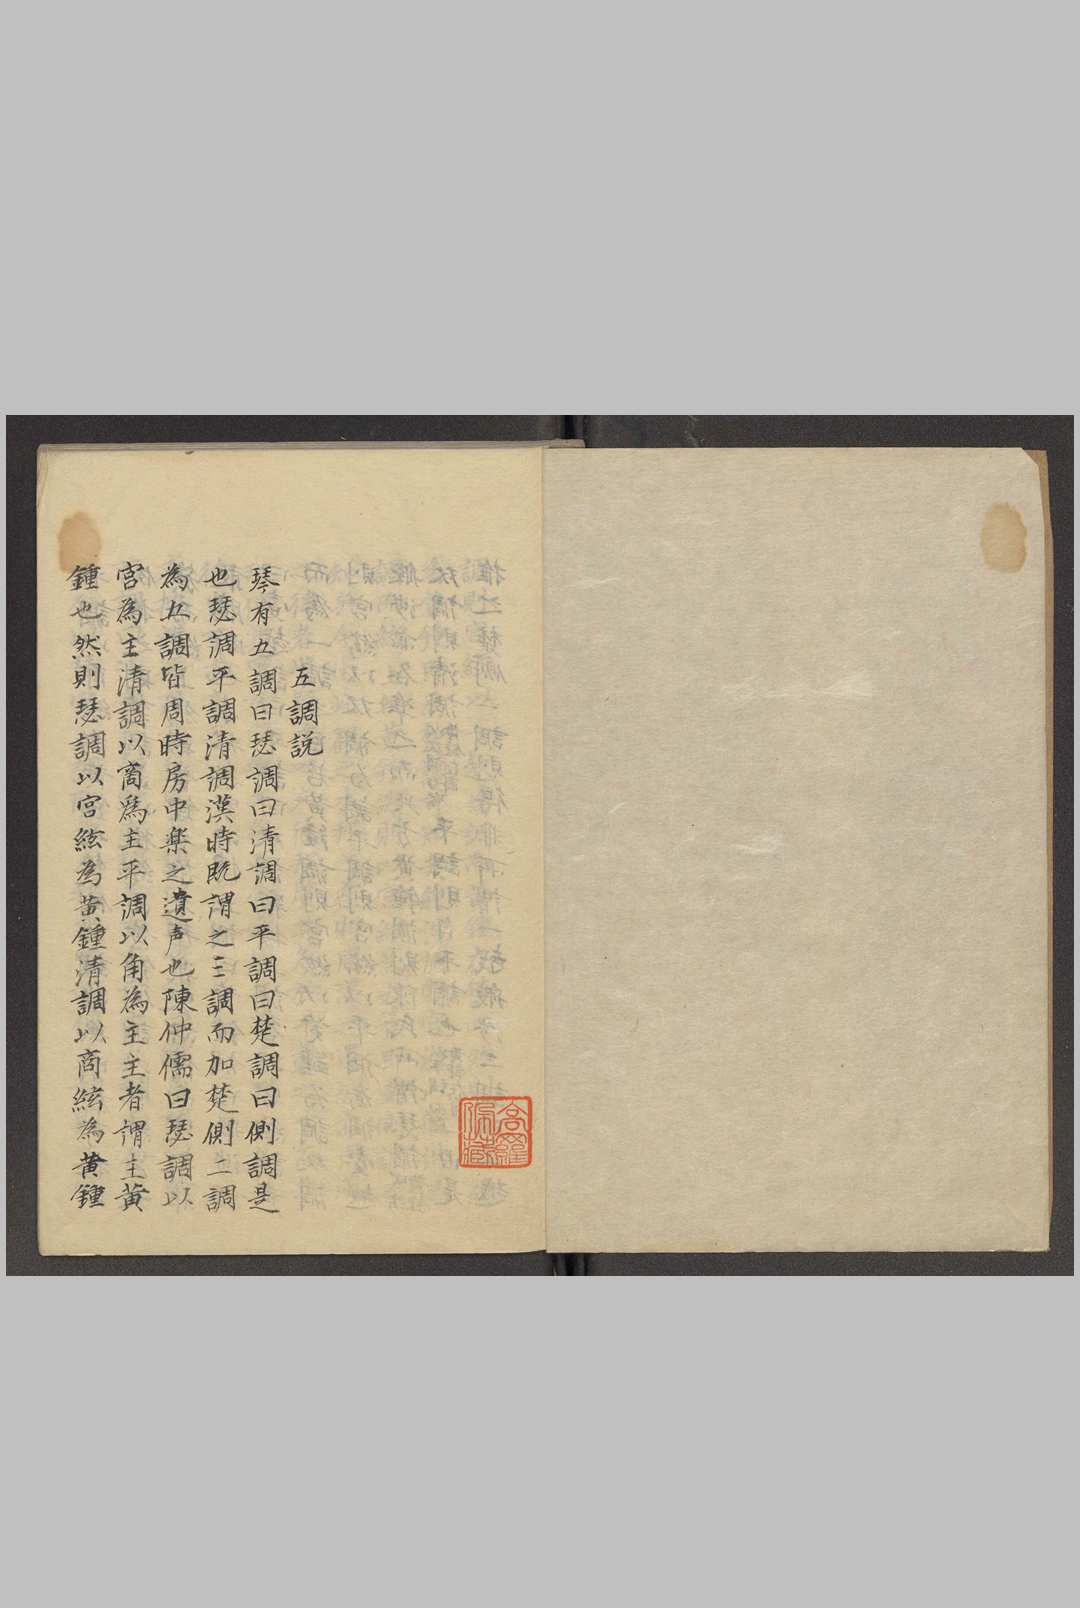 五調説
琴有五調曰瑟調曰清調曰平調曰楚調曰側調是
也瑟調平調清調漢時既謂之三調而加楚側二調
為五調皆周時房中楽之遺声也陳仲儒曰瑟調以
宮為主清調以商爲主平調以角為主主者謂主黄
鍾也然則瑟調以宮絃為黄鍾清調以商絃為黄鍾
高羅佩藏